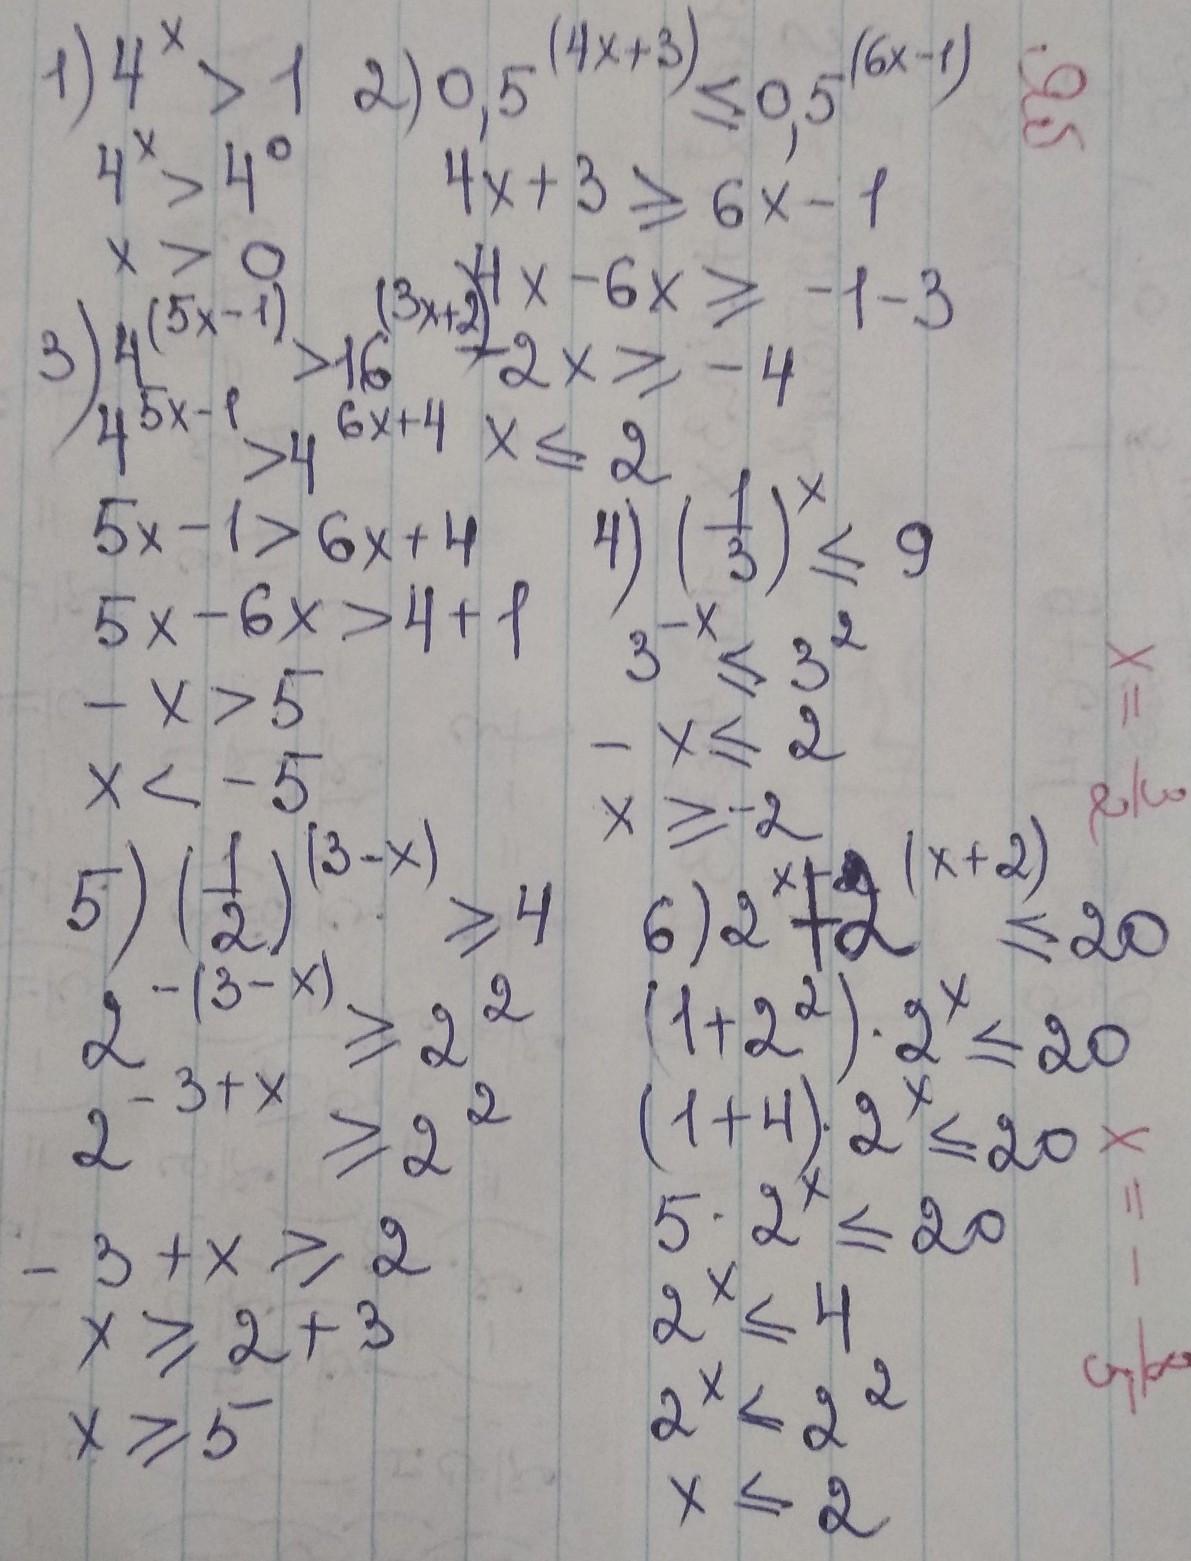 1) 4^x > 1
4^x > 4^0
x > 0
2) 0,5^(4x+3) ≤ 0,5^(6x-1)
4x + 3 ≥ 6x - 1
4x - 6x ≥ -1 - 3
-2x ≥ -4
x ≤ 2
3) 4^(5x-1) > 16^(3x+2)
4^5x-1 > 4^6x+4
5x - 1 > 6x + 4
5x - 6x > 4 + 1
- x > 5
x < - 5
4) (1/3)^x ≤ 9
3^-x ≤ 3^2
- x ≤ 2
x ≥ -2
5) (1/2)^(3-x) ≥ 4
2^-(3-x) ≥ 2^2
2^-3+x ≥ 2^2
- 3 + x ≥ 2
x ≥ 2 + 3
x ≥ 5
6) 2^x + 2^(x+2) ≤ 20
(1 + 2^2) · 2^x ≤ 20
(1 + 4) · 2^x ≤ 20
5 · 2^x ≤ 20
2^x ≤ 4
2^x ≤ 2^2
x ≤ 2
x = 3/2